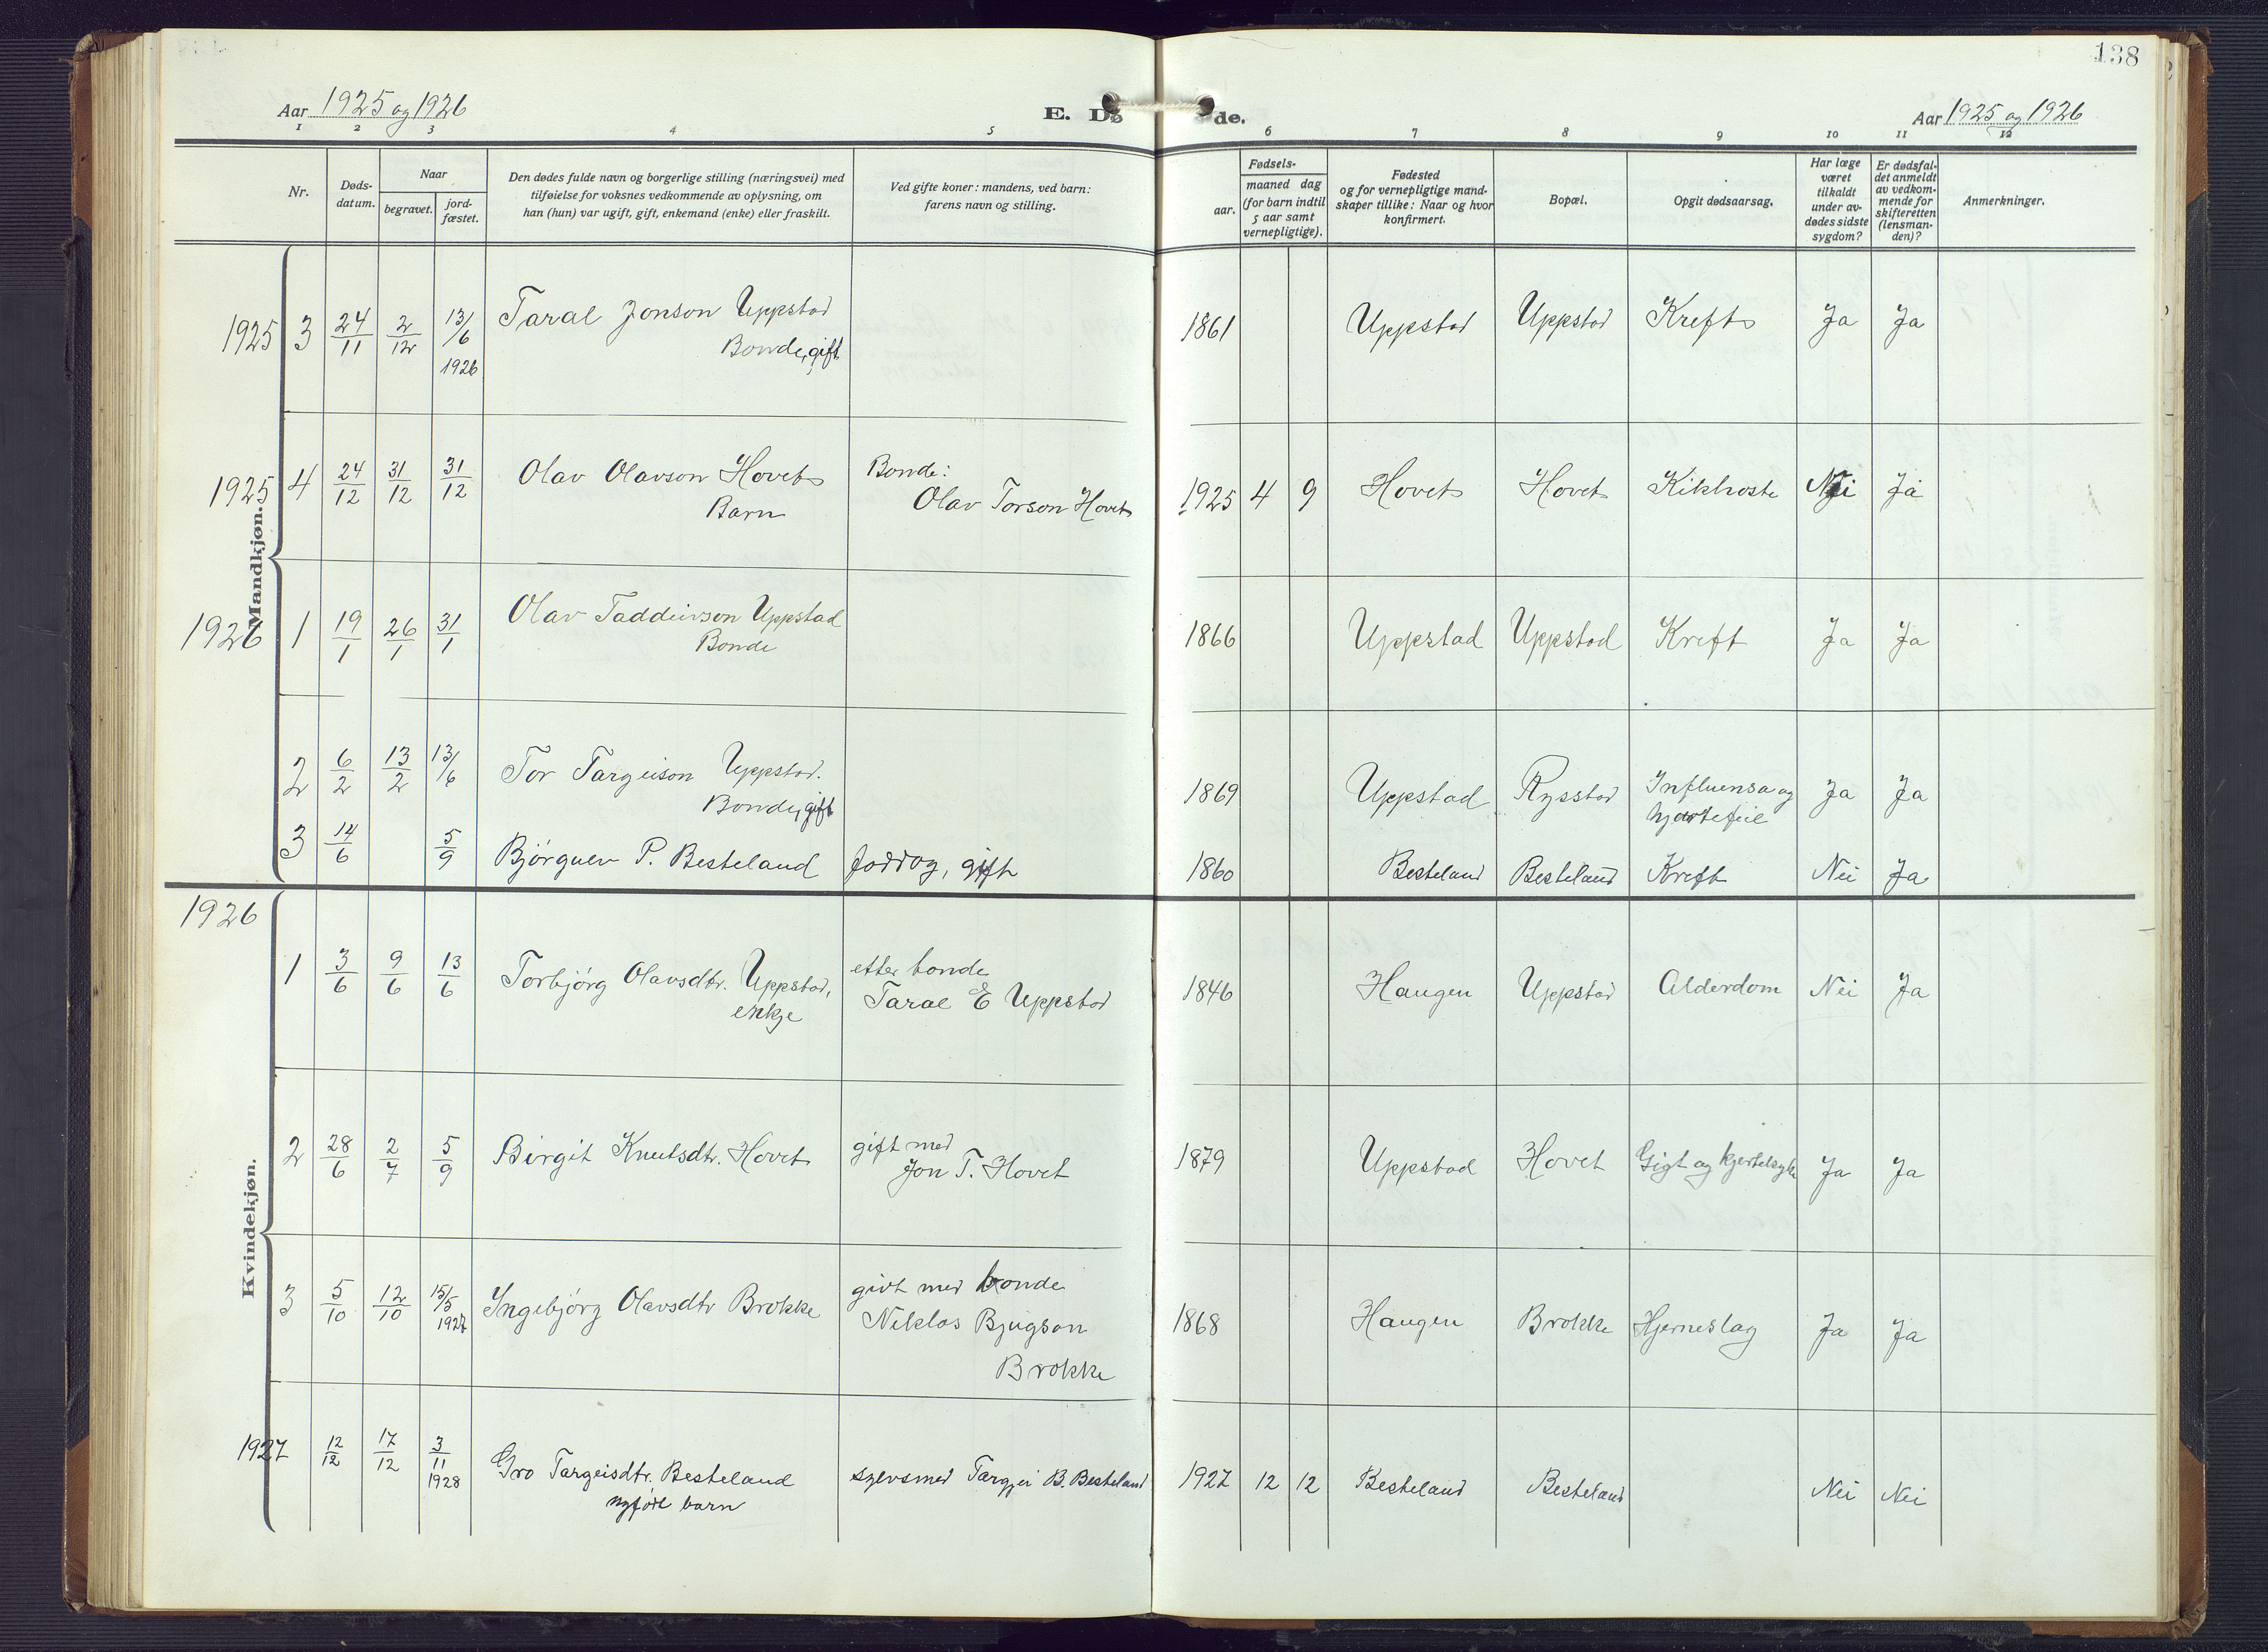 138
Aar 1925 og 1926
E. Dø de.
Aar 1925 og 1926
1 2 3 4 5 6 7 8 9 10 11 12
Nr.
Døds-
datum.
Naar
begravet.
jord-
fæstet.
Den dødes fulde navn og borgerlige stilling (næringsvei) med
tilføielse for voksnes vedkommende av oplysning, om
han (hun) var ugift, gift, enkemand (enke) eller fraskilt.
Ved gifte koner: mandens, ved barn:
farens navn og stilling.
Fødsels-
aar.
maaned dag
(for barn indtil
5 aar samt
vernepligtige).
Fødested
og for vernepligtige mand-
skaper tillike: Naar og hvor
konfirmert.
Bopæl.
Opgit dødsaarsag.
Har læge
været
tilkaldt
under av-
dødes sidste
sygdom?
Er dødsfal-
det anmeldt
av vedkom-
mende for
skifteretten
(lensman-
den)?
Anmerkninger.
Mandkjøn.
1925 3 24/11 2/12 13/6 1926 Taral Jonson Uppstad
Bonde, gift
1861 Uppstad Uppstad Kreft Ja Ja
1925 4 24/12 31/12 31/12 Olav Olavson Hovet
Barn
Bonde:
Olav Torson Hovet
1925 4 9 Hovet Hovet Kikhoste Nei Ja
1926 1 19/1 26/1 31/1 Olav Taddeivson Uppstad
Bonde
1866 Uppstad Uppstad Kreft Ja Ja
2 6/2 13/2 13/6 Tor Targeison Uppstad.
Bonde, gift
1869 Uppstad Rysstad Influensa og
hjartefeil
Ja Ja
3 14/6 5/9 Bjørguv P. Besteland gift
1860 Besteland Besteland Kreft Nei Ja
Kvindekjøn.
1926
1 3/6 9/6 13/6 Torbjørg Olavsdtr. Uppstad,
enkje
etter bonde
Taral E Uppstad
1846 Haugen Uppstad Alderdom Nei Ja
2 28/6 2/7 5/9 Birgit Knutsdtr. Hovet
gift med
Jon T. Hovet
1879 Uppstad Hovet Gigt og kjertelsyke Ja Ja
3 5/10 12/10 15/5 1927 Ingebjørg Olavsdtr Brokke
givt med bonde
Niklas Bjugson
Brokke
1868 Haugen Brokke Hjerneslag Ja Ja
1927 12/12 17/12 3/11 1928 Gro Targeisdtr. Besteland
nyfødt barn
Targjei B. Besteland
1927 12 12 Besteland Besteland Nei Nei